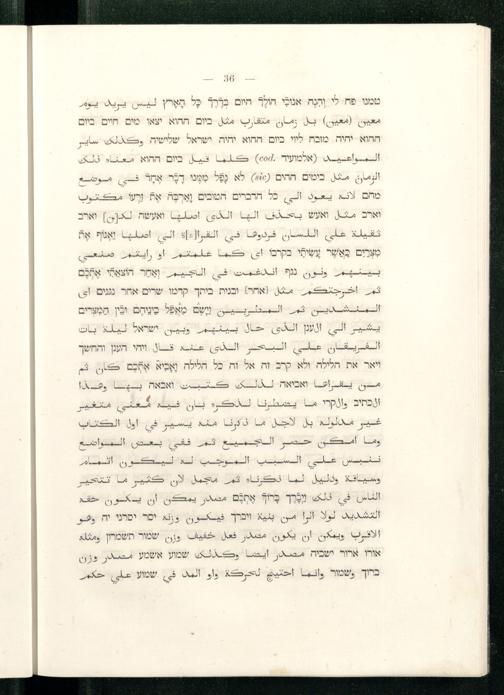 — 36 —
טמנו פח לי וְהִנֵּה אנוכי הולֵךְ היום בְּדֶרֶךְ כָּל הָאָרֶץ ليس يريد يوم
معين (معين) بل زمان متقارب مثل ביום ההוא יצאו מים חיים ביום
ההוא יהיה מזבח ליוי ביום ההוא יהיה ישראל שלישיה وكذلك ساير
المواعيد (אלמועיד .cod) كلما قيل ביום ההוא معناه ذلك
الزمان مثل בימים ההים (sic) לא נָפַל מִמֶּנּוּ דָּבָר אֶחָד في موضع
מהם لانه يعود الى כל הדברים הטובים וָאַרְבֶּה אֶת זַרְעוֹ مكتوب
וארב مثل ואעש بحذف الها الذى اصلها ואעשה לכ[ן] וארב
ثقيلة على اللسان فردوها في القرا[ء]ة الى اصلها וָאֶגּוֹף אֶת
מִצְרַיִם כַּאֲשֶׁר עָשִׂיתִי בקרבו اى كما علمتم او رايتم صنعي
بينهم ونون נגף اندغمت في الجيم וְאַחַר הוֹצֵאתִי אֶתְכֶם
ثم اخرجتكم مثل [אחר] ובנית ביתך קדמו שרים אחר נוגנים اى
المنشدين ثم المطربين וַיָּשֶׂם מַאֲפֵל בֵּינֵיהֶם וּבֵין הַמִּצְרִים
يشير الى الענן الذى حال بينهم وبين ישראל ليلة بات
الفريقان على البحر الذى عنه قال ויהי הענן והחשך
ויאר את הלילה ולא קרב זה אל זה כל הלילה וָאָבִיא אֶתְכֶם كان ثم
من يقراها ואביאה لذلك كتبت ואבאה بها وهذا
الכתיב والקרי ما يضطرنا لذكره بان فيه معني متغير
غير مدلوله بل لاجل ما ذكرنا منه يسير في اول الكتاب
وما امكن حصر الجميع ثم ففي بعض المواضع
ننبس علي السبب الموجب له ليكون اتمام
وسيافة ودليل لما ذكرناه ثم مجمل لان كثير ما تتحير
الناس في ذلك וַיְבָרֶךְ בָּרוֹךְ אֶתְכֶם مصدر يمكن ان يكون حقه
التشديد لولا الרا من بنية ויברך فيكون وزنه יסר יסרני יה وهو
الاقرب ويمكن ان يكون مصدر فعل خفيف وزن שמור תשמרון ومثله
אורו ארור ישביה مصدر ايضا وكذلك שמוע אשמע مصدر وزن
ברוך وשמור وانما احتيج لحركة واو المد في שמוע على حكم